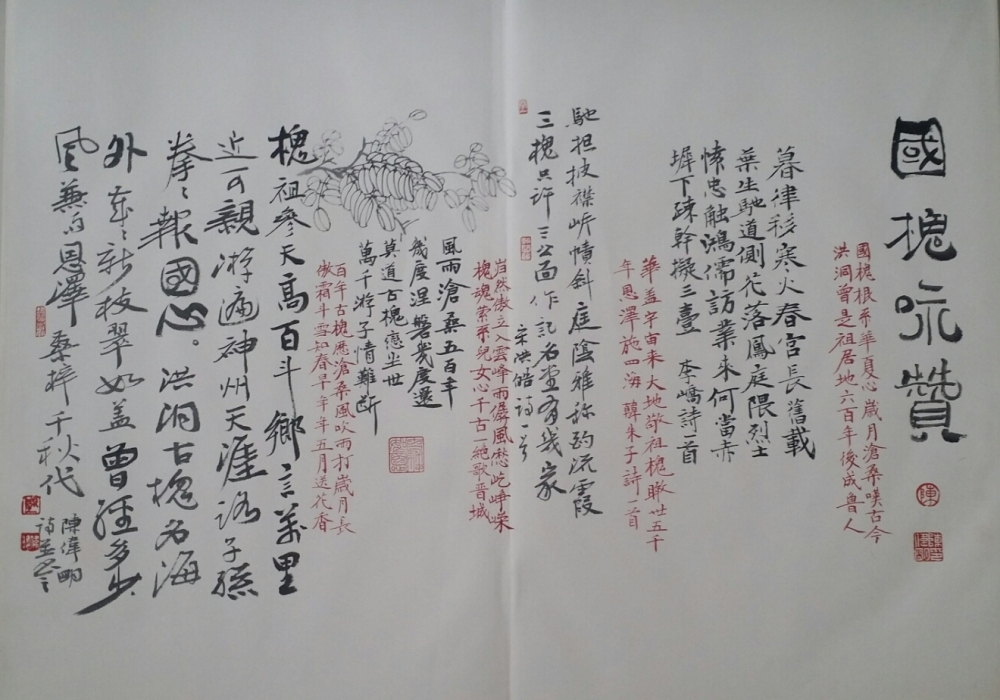 國槐咏贊
國槐根系華夏心歲月滄桑嘆古今
洪洞曾是祖居地六百年後成魯人
暮律移寒火春宮長舊栽
葉生馳道側花落鳳庭隈烈士
懷忠觸鴻儒訪業來何當赤
墀下疎幹擬三臺 李嶠詩一首
華蓋宇宙來大地敬祖槐瞰世五千
年恩澤施四海 韓朱子詩一首
馳担披襟岸幘斜庭陰雅称酌流霞
三槐只許三公面作記名堂有幾家
宋洪皓詩一首
岿然傲立入雲峰雨僝風僽屹崢嶸
槐魂縈系兒女心千古一純歌晋城
風雨滄桑五百年
幾度涅磐幾度遷
莫道古槐戀坐世
萬千游子情難断
百年古槐歷滄桑風吹雨打歲月長
傲霜斗雪知春早年年五月送花香
槐祖參天高百斗鄉言萬里
近可親游遍神州天涯路子孫
拳拳報國心。洪洞古槐名海
外年年新枝翠如蓋曾經多少
風兼雨恩澤桑梓千秋代
陳偉明
詩並書